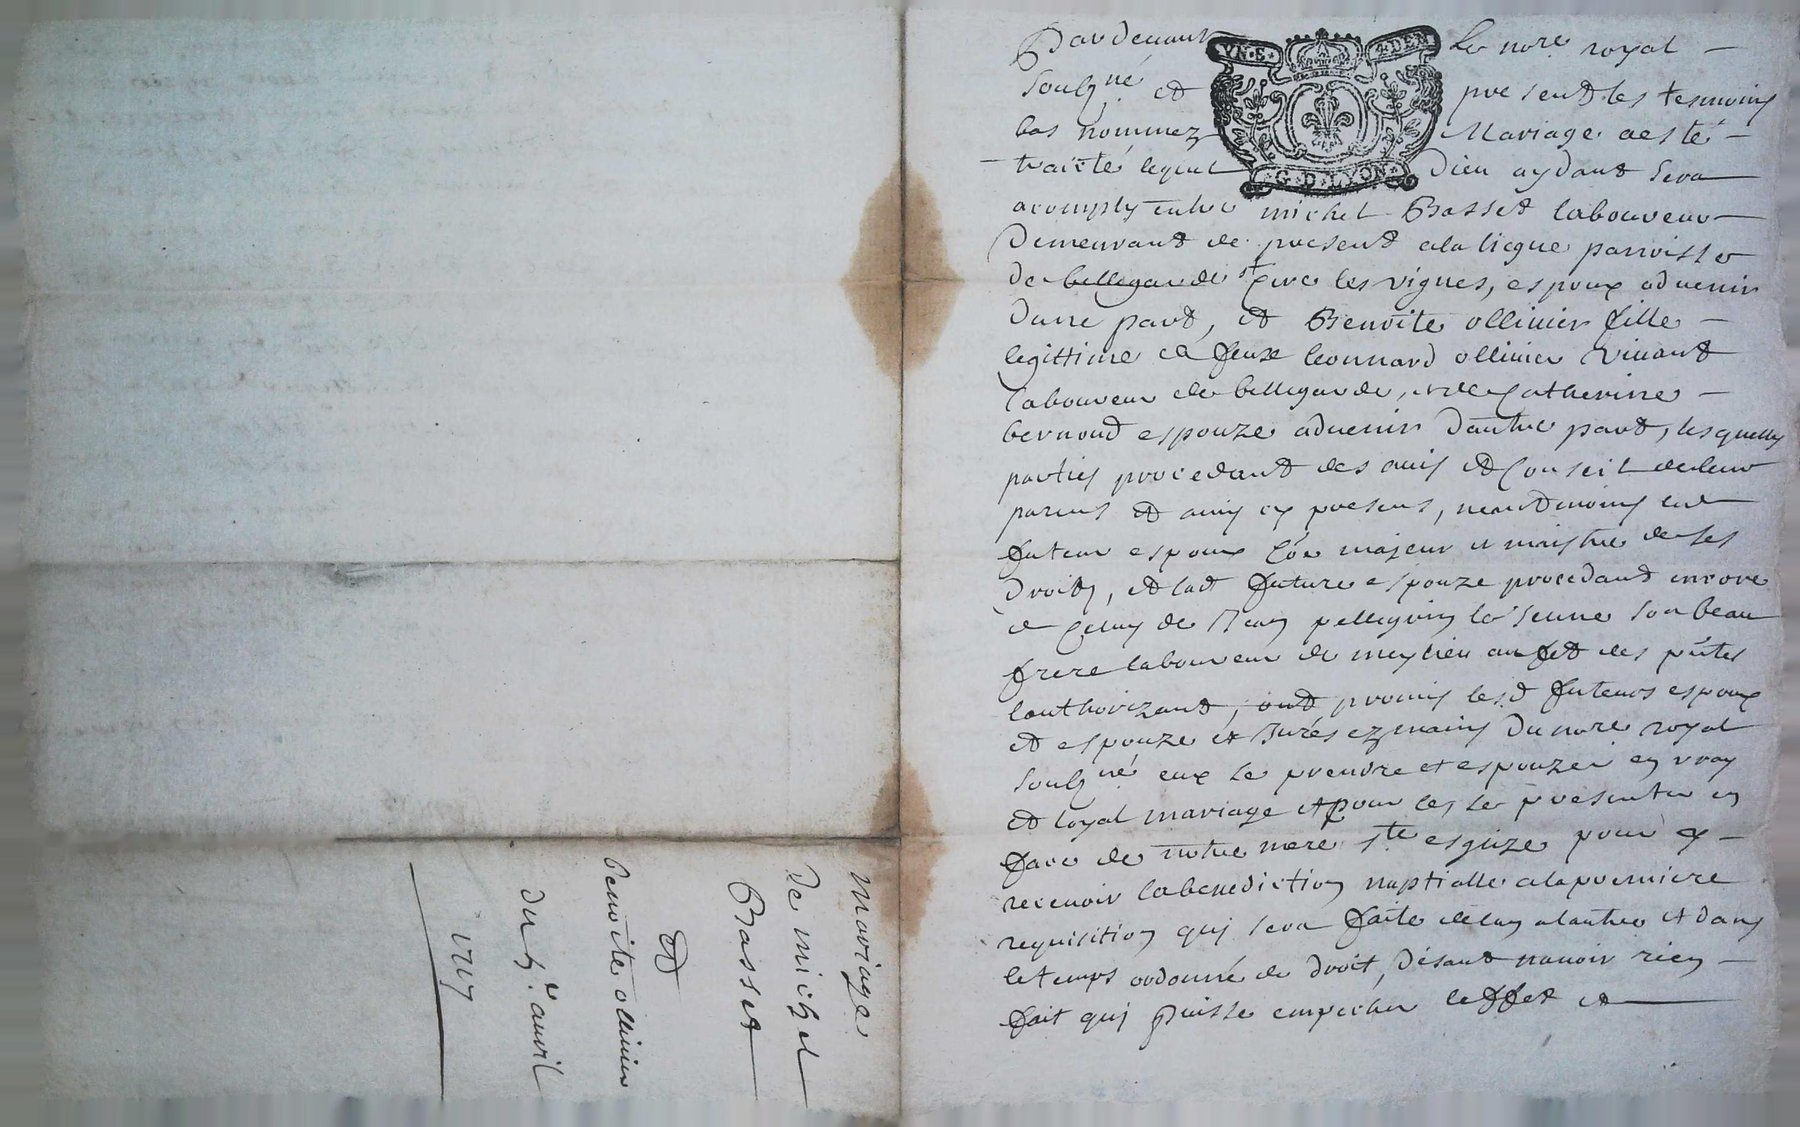 Mariage
De michel
Basset
Et
benoite ollinier
Du avril
1717
VN·S· 4·DEN
G·D·LYON
Pardeuant Le nore royal
soubzné et present les tesmoins
bas nommez Mariage aesté
traicté lequel Dieu aydant sera
acomply entre michel Basset laboureur
Demeurant de present ala liegue parroisse
de bellegarde st Cire les vignes, espoux aduenir
Dune part, et Benoite ollinier fille
legittime a feux leonnard ollinier viuant
laboureur de bellegarde, et de Catherine
bernoud espouze aduenir Dautre part, lesquelles
parties procedant des auis et Conseil de leur
parens et amis cy presens, neantmoins led
futeur espoux Coe majeur et maistre de ses
Droits, et lad future espouze procedant encore
de Celuy de Jean pellegrin le Jeune son beau
frere laboureur de meylieu au fet des pntes
lauthorizant, ont promis lesd futeurs espoux
et espouze et Jurés ez mains Du nore royal
soubzné eux se prendre et espouzer en vray
et loyal mariage et pour ce se presenter en
face de notre mere ste esglize pour y
receuoir la benediction nuptialle ala premiere
requisition quj sera faite de lun alautre et dans
le temps ordonné de droit, Disant nauoir rien
fait quj Puisse empecher leffet et